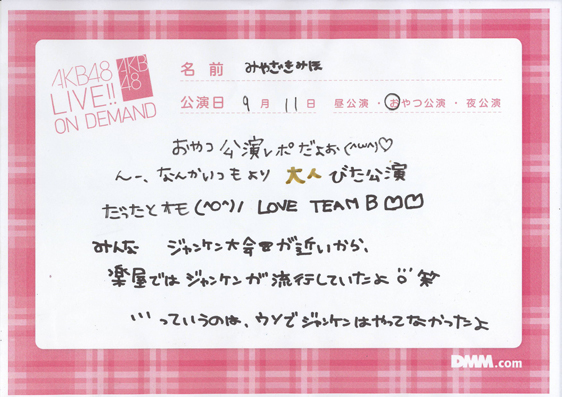 AKB48
LIVE!!
ON DEMAND
AKB
48
名前 みやざきみほ
公演日 9月11日 昼公演・おやつ公演・夜公演
おやつ公演レポだよぉ(^ω^)♡
んー、なんかいつもより大人びた公演
だったとオモ(^O^)/ LOVE TEAM B♡♡
みんな ジャンケン大会が近いから、
楽屋ではジャンケンが流行していたよ 笑
…っていうのは、ウソでジャンケンはやってなかったよ
DMM.com